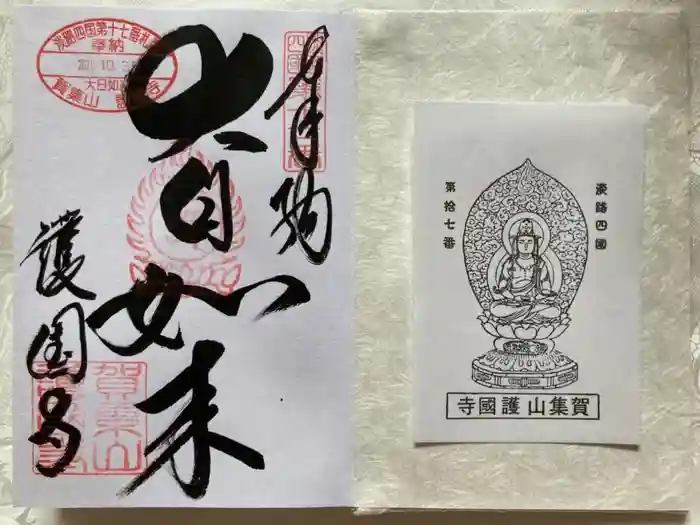 奉納
大日如来
護国寺
淡路四国第十七番札所
奉納
大日如来
賀集山
賀集山
淡路四國
第拾七番
賀集山 護國寺